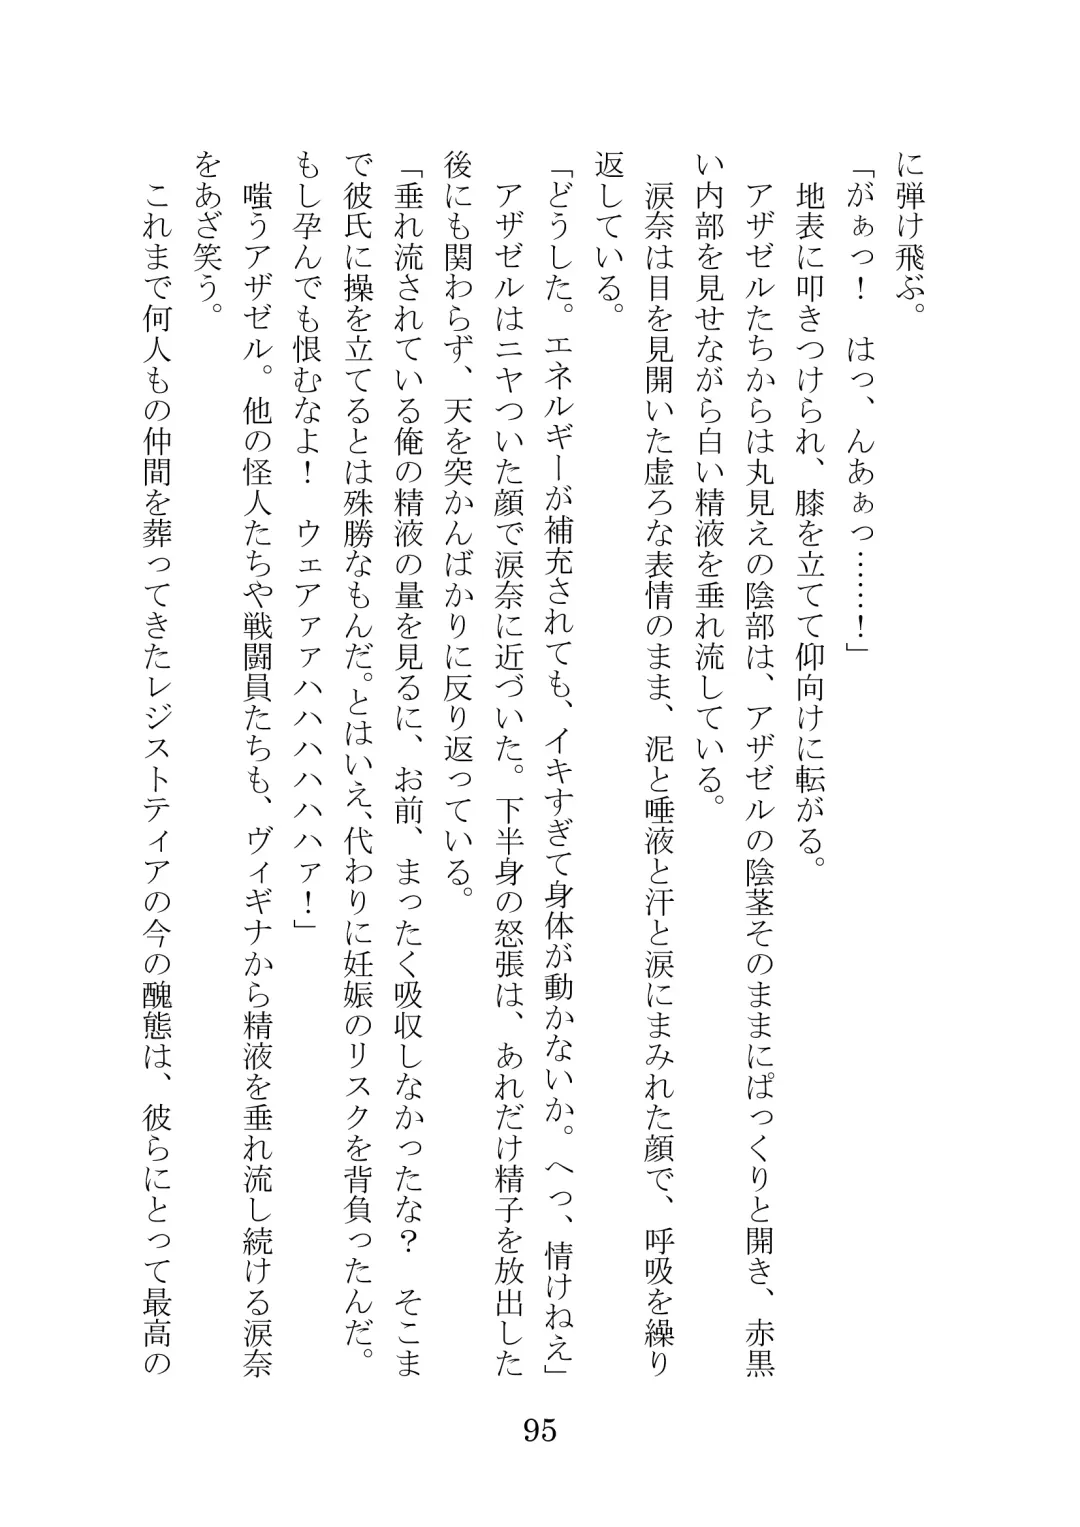 に弾け飛ぶ。
「がぁっ！　はっ、んあぁっ……！」
　地表に叩きつけられ、膝を立てて仰向けに転がる。
　アザゼルたちからは丸見えの陰部は、アザゼルの陰茎そのままにぱっくりと開き、赤黒
い内部を見せながら白い精液を垂れ流している。
　涙奈は目を見開いた虚ろな表情のまま、泥と唾液と汗と涙にまみれた顔で、呼吸を繰り
返している。
「どうした。エネルギーが補充されても、イキすぎて身体が動かないか。へっ、情けねえ」
　アザゼルはニヤついた顔で涙奈に近づいた。下半身の怒張は、あれだけ精子を放出した
後にも関わらず、天を突かんばかりに反り返っている。
「垂れ流されている俺の精液の量を見るに、お前、まったく吸収しなかったな？　そこま
で彼氏に操を立てるとは殊勝なもんだ。とはいえ、代わりに妊娠のリスクを背負ったんだ。
もし孕んでも恨むなよ！　ウェアァァハハハハハァ！」
　嗤うアザゼル。他の怪人たちや戦闘員たちも、ヴィギナから精液を垂れ流し続ける涙奈
をあざ笑う。
　これまで何人もの仲間を葬ってきたレジストティアの今の醜態は、彼らにとって最高の
95